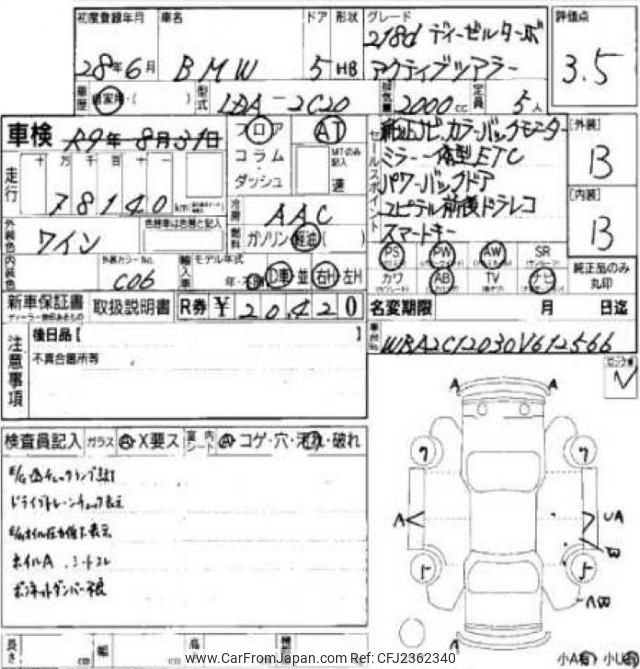 初度登録年月 車名 ドア 形状 グレード 評価点
28年6月 BMW 5 HB 218d ディーゼルターボ
アクティブツアラー
3.5
車歴 自家用・( ) 型式 LDA-2C20 排気量 2000cc 定員 5人
車検 R9年8月31日 フロア AT
コラム・ダッシュ
MTのみ記入 速
走行 十万千百十
78140km
セールスポイント
純正ナビ、カラーバックモニター
ミラー一体型ETC
パワーバックドア
ユピテル前後ドラレコ
スマートキー
[外装]
B
[内装]
B
冷房 AAC
燃料 ガソリン・軽油( )
外装色 ワイン 色替車は色替と記入
内装色 外装カラーNo. C06
輸入車 モデル年式 年・不明 D車・並 右H・左H
PS PW AW SR
カワ AB TV ナビ
純正品のみ丸印
新車保証書 取扱説明書 R券 ¥20,420
名変期限 月 日迄
後日品[ ]
車台No. WBA2C12030V612566
注意事項
不具合箇所等
検査員記入 ガラス A・X要ス 室内シート A・コゲ・穴・汚れ・破れ
E/Gチェックランプ点灯
ドライブトレーンチェック表示
E/Gオイル圧力低下表示
ホイルA
ボンネットダンパー不良
A A
ワ ワ
A UA
W
5 5
AW
A
長さ cm 幅 cm 高
小A有 小U有
www.CarFromJapan.com Ref: CFJ2362340